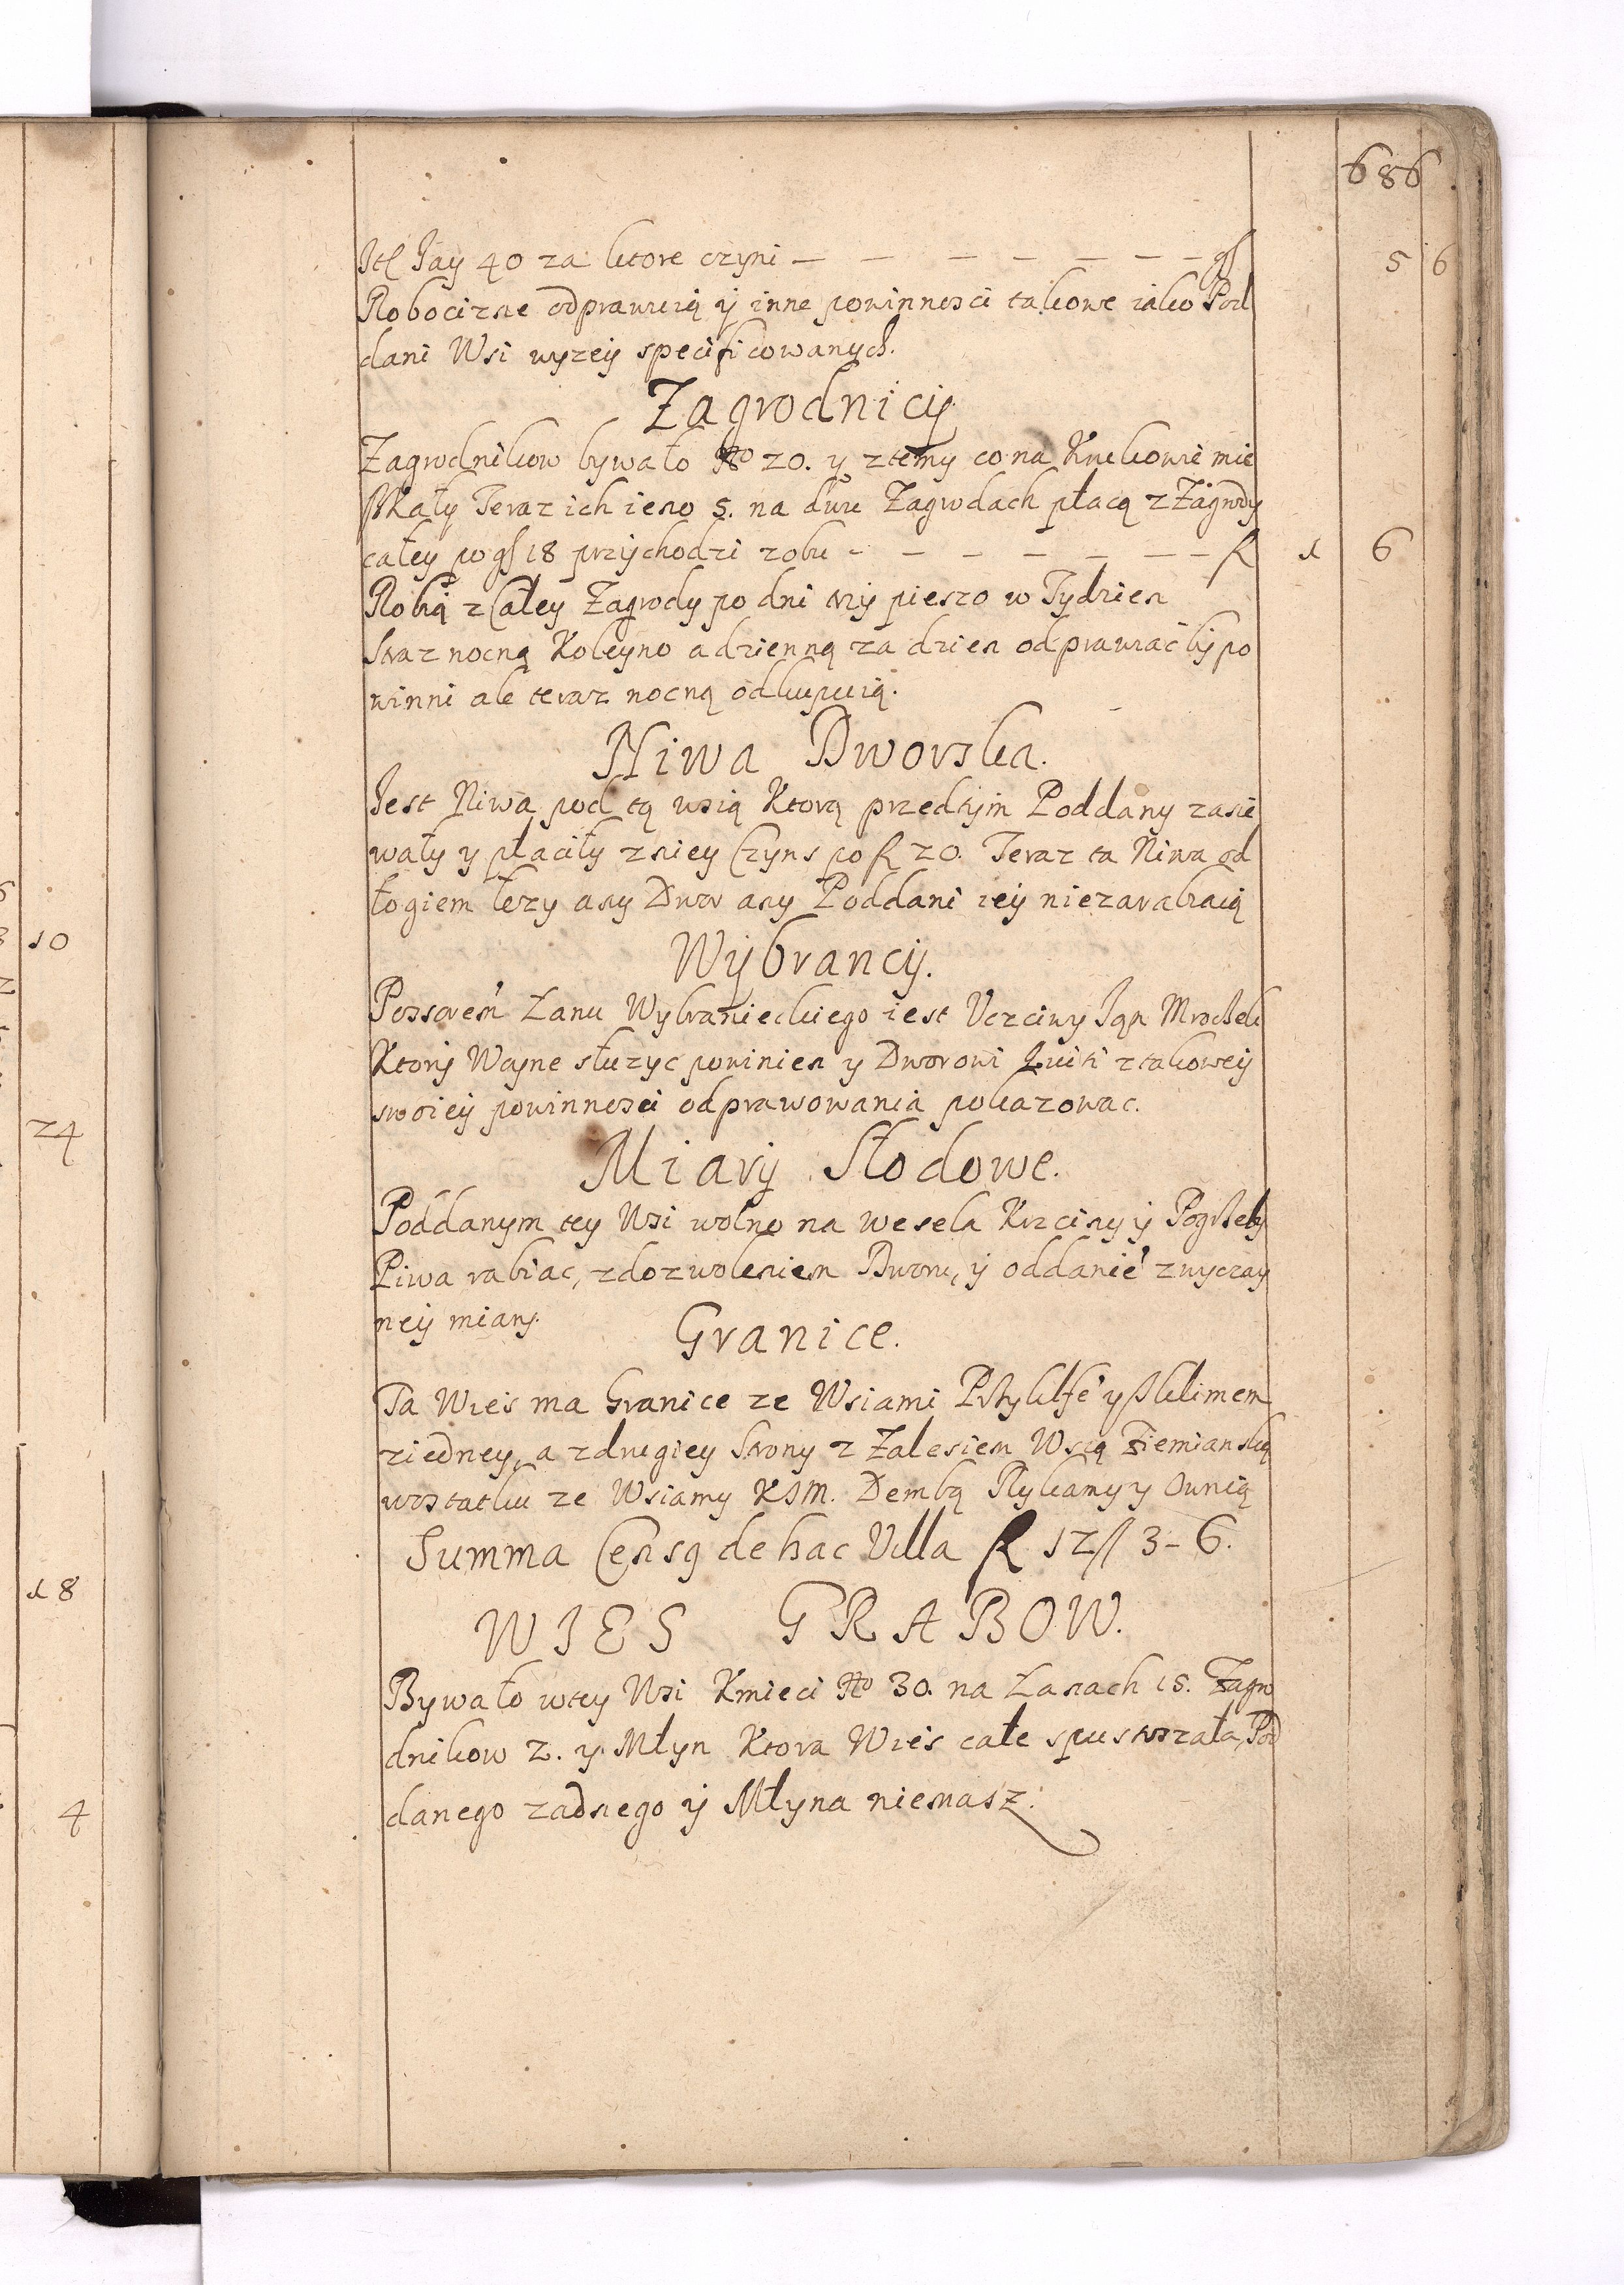 686
Itē Jay 40 za ktore czyni — — — — — — — gſ 5 6
Robocizne odprawuią ÿ inne powinnosci takowe iako Pod
dani Wsi wyzeÿ specificowanych.
Zagrodnicÿ
Zagrodnikow bywało No 20. y ztemy co na Kukowie mie
szkały Teraz ich ieno 5. na dwu Zagrodach płacą z Zagrody
całey po gſ 18 przÿchodzi zobu - — — — — — — fl 1 6
Robią z Całey Zagrody po dni trzÿ pieszo w Tydzien
Straz nocną Koleyno a dzienną za dzien odprawiac bÿ po
winni ale teraz nocną odkupuią.
Niwa Dworska.
Jest Niwa pod tą wsią Ktorą przedtÿm Poddany zasie
wały y płaciły zniey Czyns po fl 20. Teraz ta Niwa od
łogiem lezy any Dwor any Poddani ieÿ niezarabiaią
Wÿbrancÿ.
Possorem Łanu Wybranieckiego iest Uczciwy Jan Mroczek
Ktorÿ Woyne słuzyc powinien y Dworowi Kwiti ztakoweÿ
swoieÿ powinnosci odprawowania pokazowac.
Miarÿ Słodowe.
Poddanym tey Wsi wolno na wesela Krzciny ÿ Pogrzeby
Piwa rabiac, zdozwoleniem Dworu, ÿ oddanie zwyczay
neÿ miarÿ.
Granice.
Ta Wies ma Granice ze Wsiami
ziedney, a zdrugiey Strony z Zalesiem Wsią Ziemianską
wostatku ze Wsiamy KJM. Dembą Rykamy y Ownią
Summa Censq de hac Villa fl 12 / 3 - 6.
WIES GRABOW.
Bywało wtey Wsi Kmieci No 30. na Łanach 15. Zagro
dnikow 2. y Młyn Ktora Wies całe spustoszała, Pod
danego zadnego ÿ Młyna niemasz.
10
24
18
4